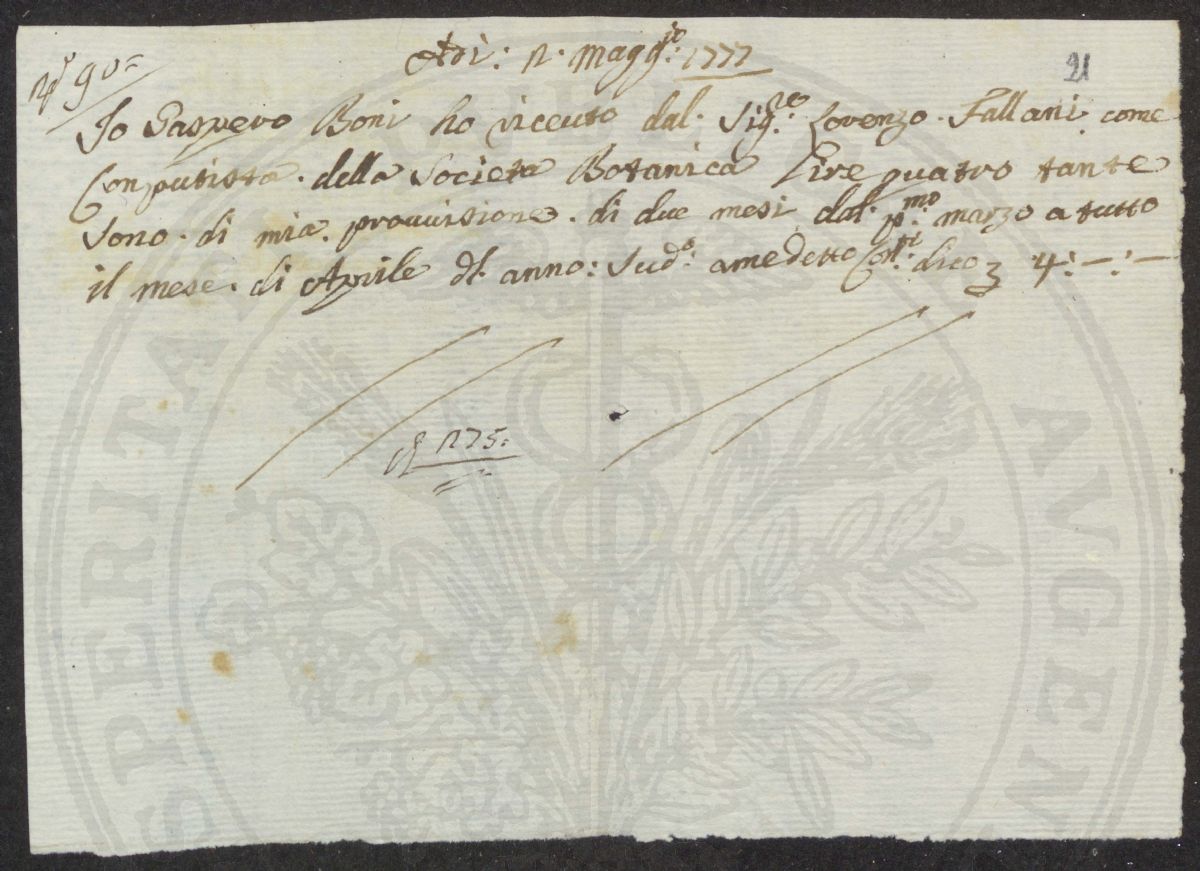 Adì: 2. Magg.io: 1777
N° 90=
21
Io Gaspero Boni ho riceuto dal. Sig.re Lorenzo. Fallani. come
Conputista. della Società Botanica Lire quatro tante
sono. di mia. prouuisione. di due mesi dal. p.mo marzo a tutto
il mese. di Aprile dl. anno: Sud.o: a me detto Con.ti: dico 4:—:—
275=
PROSPERITATI AVGEN